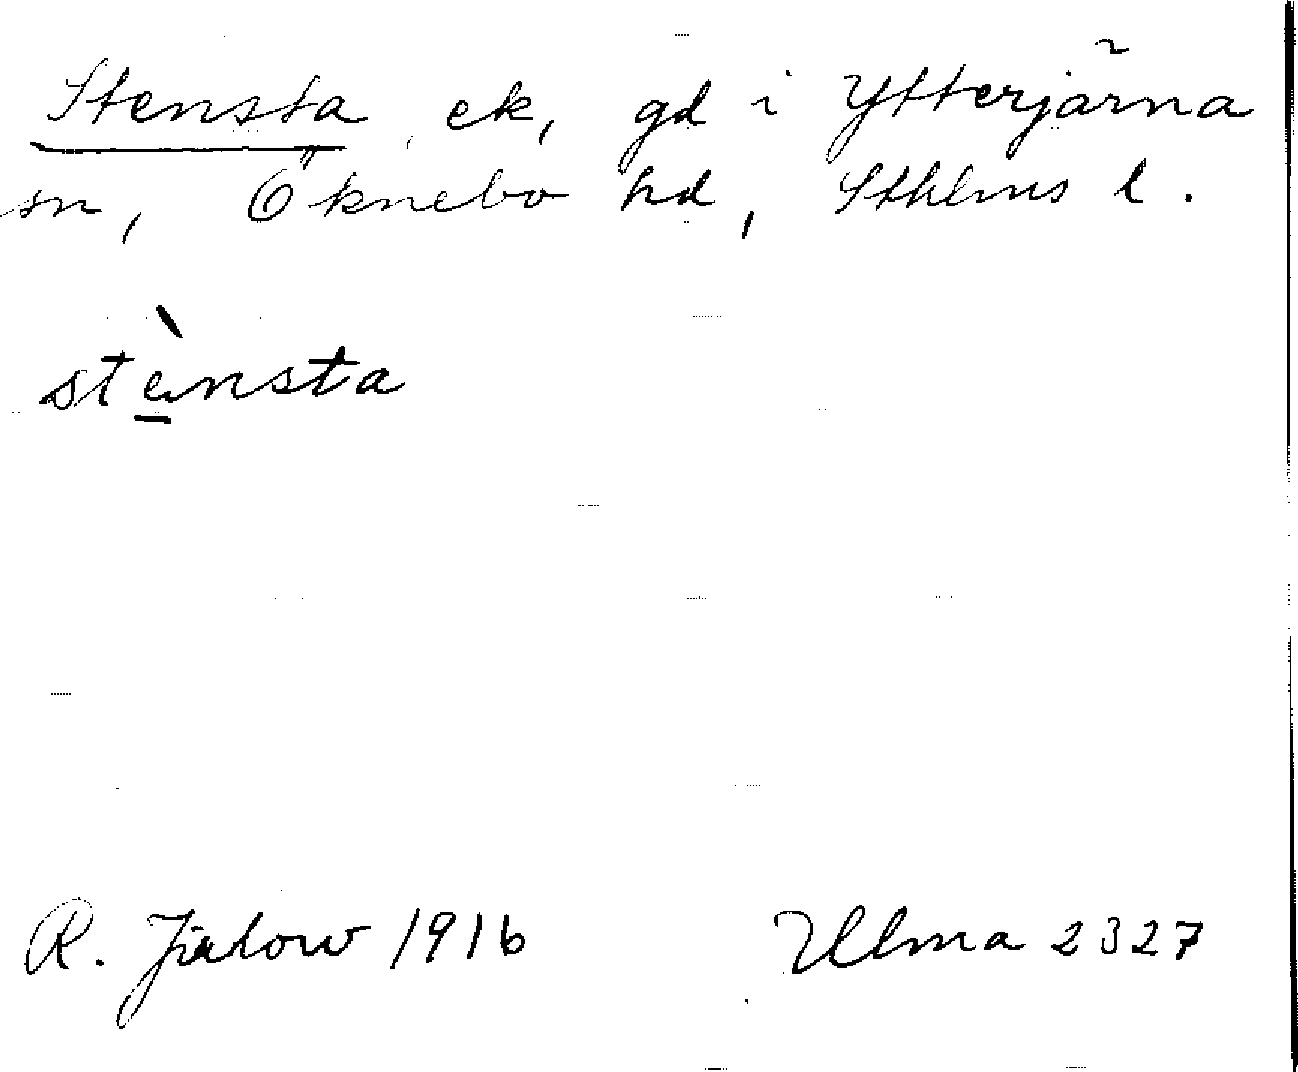 Stensta ek, gd i Ytterjärna
sn, Öknebo hd, Sthlms l.
stènsta
R. 1916 Ulma 2327